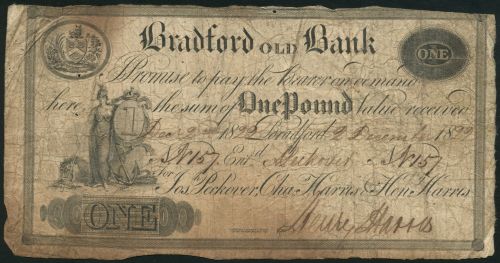 Bradford OLD Bank
ONE
I Promise to pay the Bearer on demand
here, the sum of One Pound Value received
1
Bradford 2 December
No N157 Ent.d No N157
For Jos. Peckover, Cha. Harris & Hen. Harris
ONE
Henry Harris